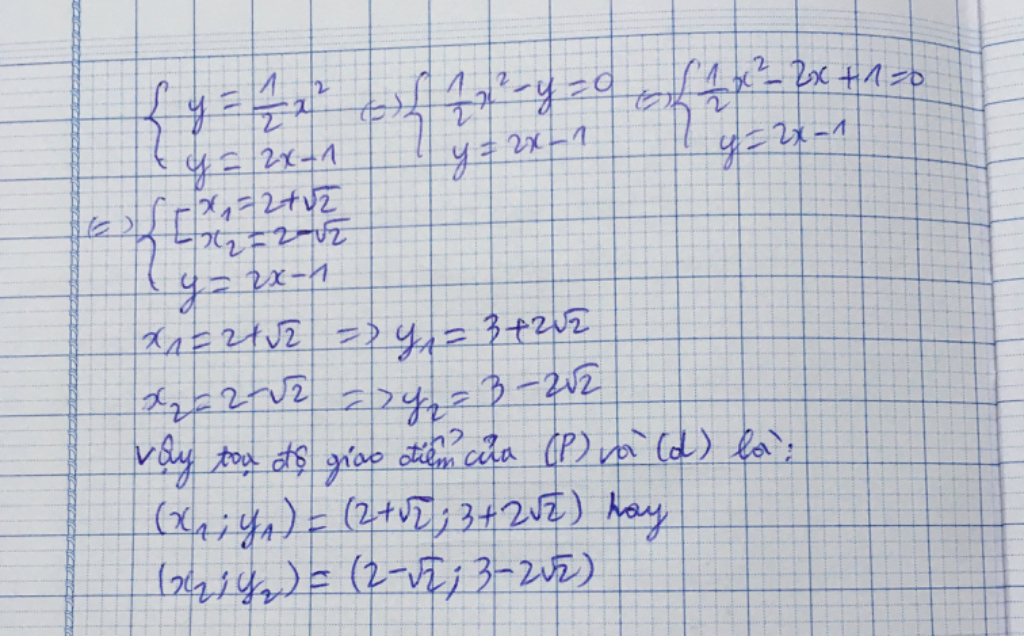 { y = 1/2 x² <=> { 1/2 x² - y = 0 <=> { 1/2 x² - 2x + 1 = 0
y = 2x - 1 y = 2x - 1 y = 2x - 1
<=> { [ x₁ = 2 + √2
x₂ = 2 - √2
y = 2x - 1
x₁ = 2 + √2 => y₁ = 3 + 2√2
x₂ = 2 - √2 => y₂ = 3 - 2√2
Vậy toạ độ giao điểm của (P) và (d) là:
(x₁; y₁) = (2 + √2; 3 + 2√2) hay
(x₂; y₂) = (2 - √2; 3 - 2√2)